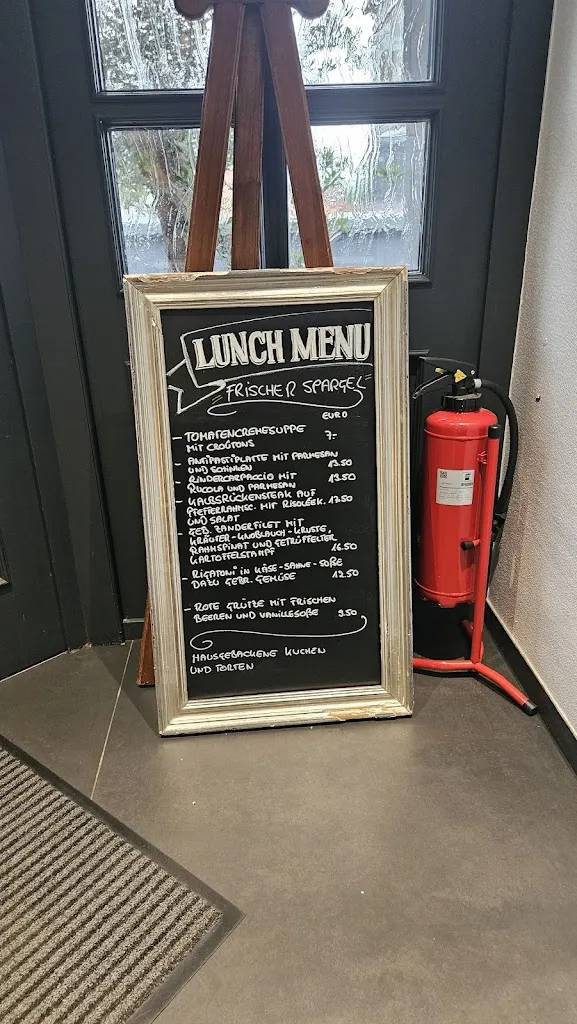 LUNCH MENU
FRISCHER SPARGEL
EURO
- TOMATENCREMESUPPE 7.-
MIT CROÛTONS
- ANTIPASTIPLATTE MIT PARMESAN
UND SCHINKEN 13.50
- RINDERCARPACCIO MIT 13.50
RUCOLA UND PARMESAN
- KALBSRÜCKENSTEAK AUF
PFEFFERRAHMS. MIT RISOLEEK. 17.50
UND SALAT
- GEB. ZANDERFILET MIT
KRÄUTER-KNOBLAUCH-KRUSTE,
RAHMSPINAT UND GETRÜFFELTER
KARTOFFELSTAMPF 16.50
- RIGATONI IN KÄSE-SAHNE-SOßE
DAZU GEBR. GEMÜSE 12.50
- ROTE GRÜTZE MIT FRISCHEN
BEEREN UND VANILLESOßE 9.50
HAUSGEBACKENE KUCHEN
UND TORTEN